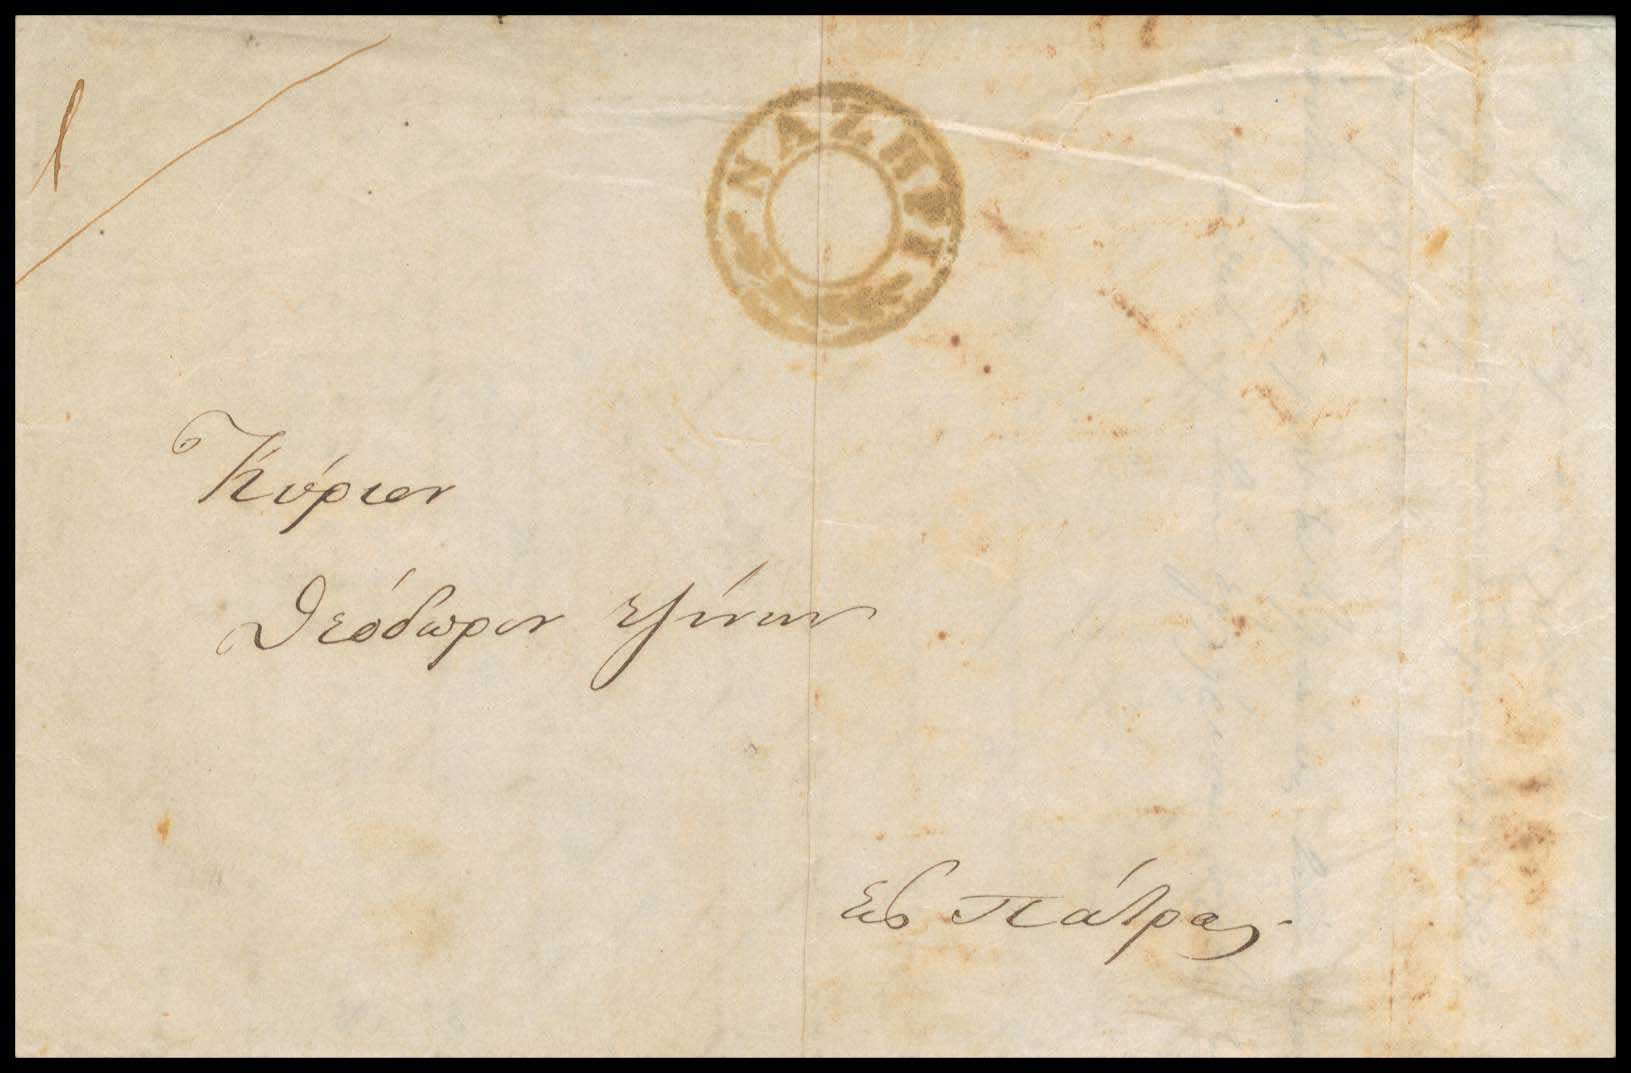 ΝΑΖΗΡΙ
Κύριον
Θεόδωρον
Εἰς Πάτρας.